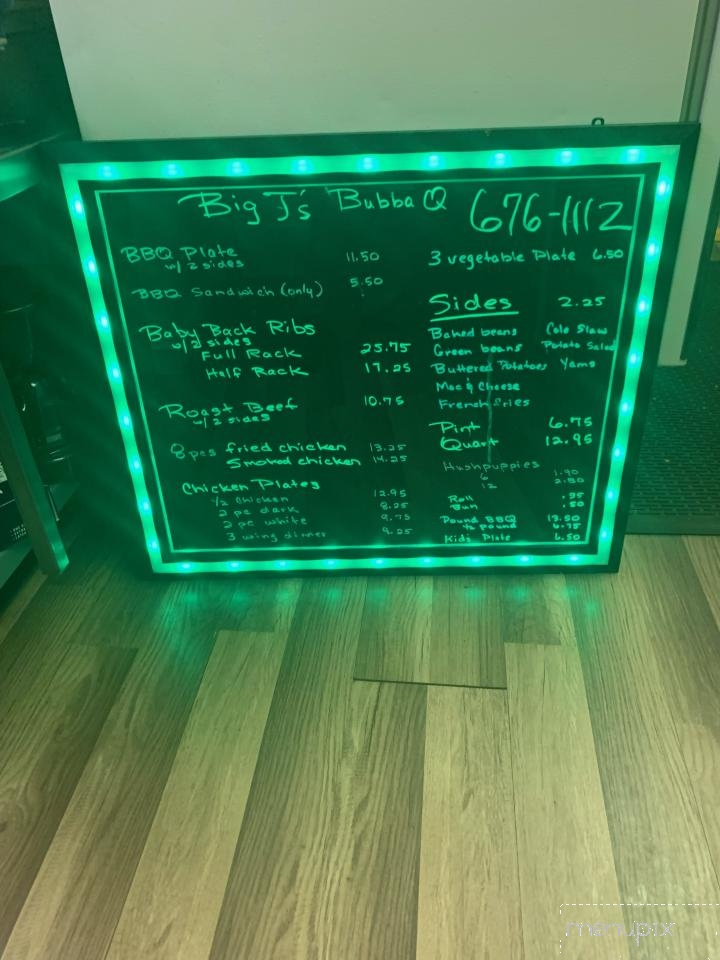 Big J's Bubba Q 676-1112
BBQ Plate 11.50
w/ 2 sides
BBQ Sandwich (only) 5.50
Baby Back Ribs
w/ 2 sides
Full Rack 25.75
Half Rack 17.25
Roast Beef 10.75
w/ 2 sides
8 pcs fried chicken 13.25
Smoked chicken 14.25
Chicken Plates
1/2 chicken 12.95
2 pc dark 8.25
2 pc white 9.75
3 wing dinner 9.25
3 vegetable Plate 6.50
Sides 2.25
Baked beans Cole Slaw
Green beans Potato Salad
Buttered Potatoes Yams
Mac & Cheese
French fries
Pint 6.75
Quart 12.95
Hushpuppies
6 1.90
12 2.80
Roll .95
Bun .50
Pound BBQ 13.50
1/2 pound 6.75
Kids Plate 6.50
menupix